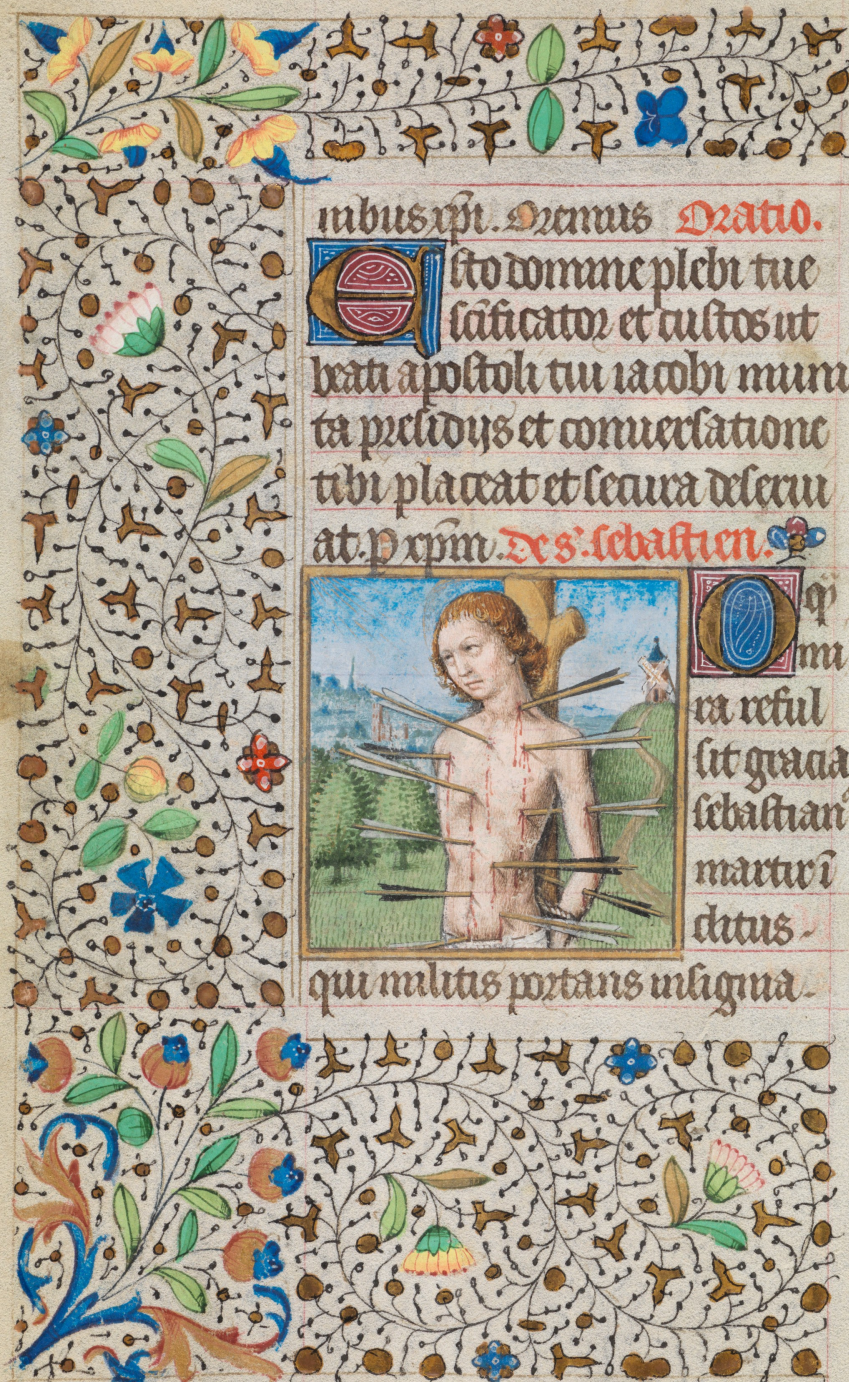 nibus xp̄i. Oremus Oratio.
Esto domine plebi tue
scīficator et custos ut
beati apostoli tui iacobi muni
ta presidijs et conuersatione
tibi placeat et secura deserui
at. p xp̄m. De s'. sebastien.
O q̄
mi
ra reful
sit gracia
sebastian⁹
martir ī
clitus
qui militis portans insignia